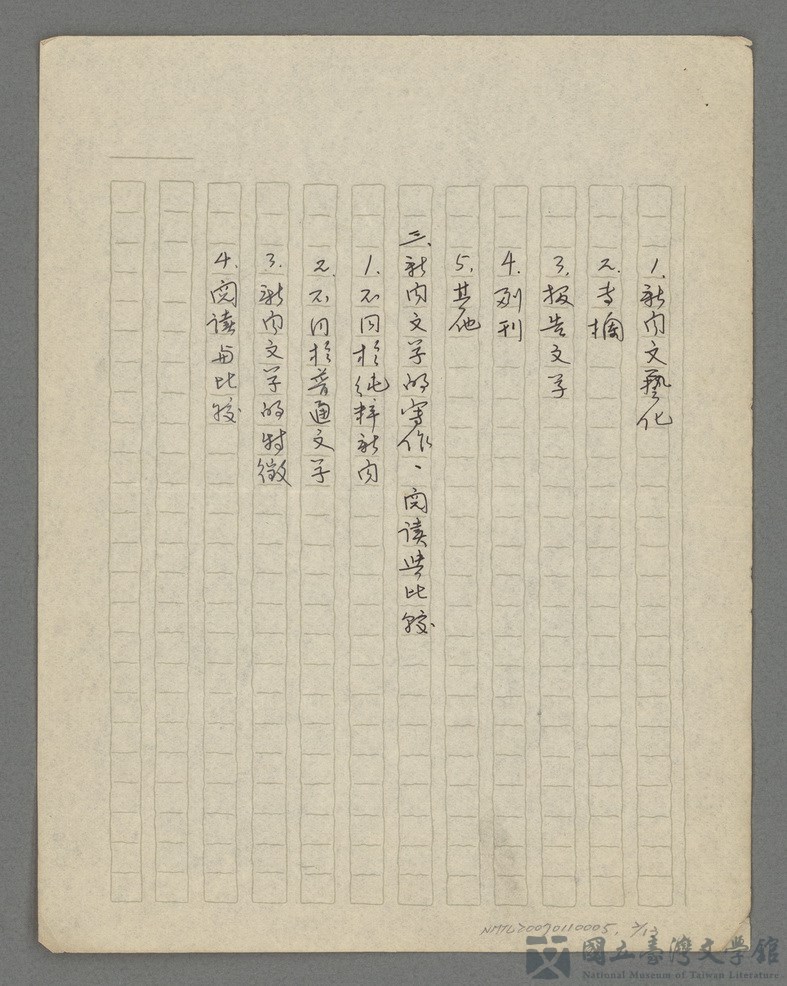 1. 新闻文藝化
2. 专栏
3. 报告文学
4. 副刊
5. 其他
三、新闻文学的写作、阅读与比较
1. 不同於纯粹新闻
2. 不同於普通文学
3. 新闻文学的特徵
4. 阅读与比较
NMTL20070110005, 2/13
國立臺灣文學館
National Museum of Taiwan Literature